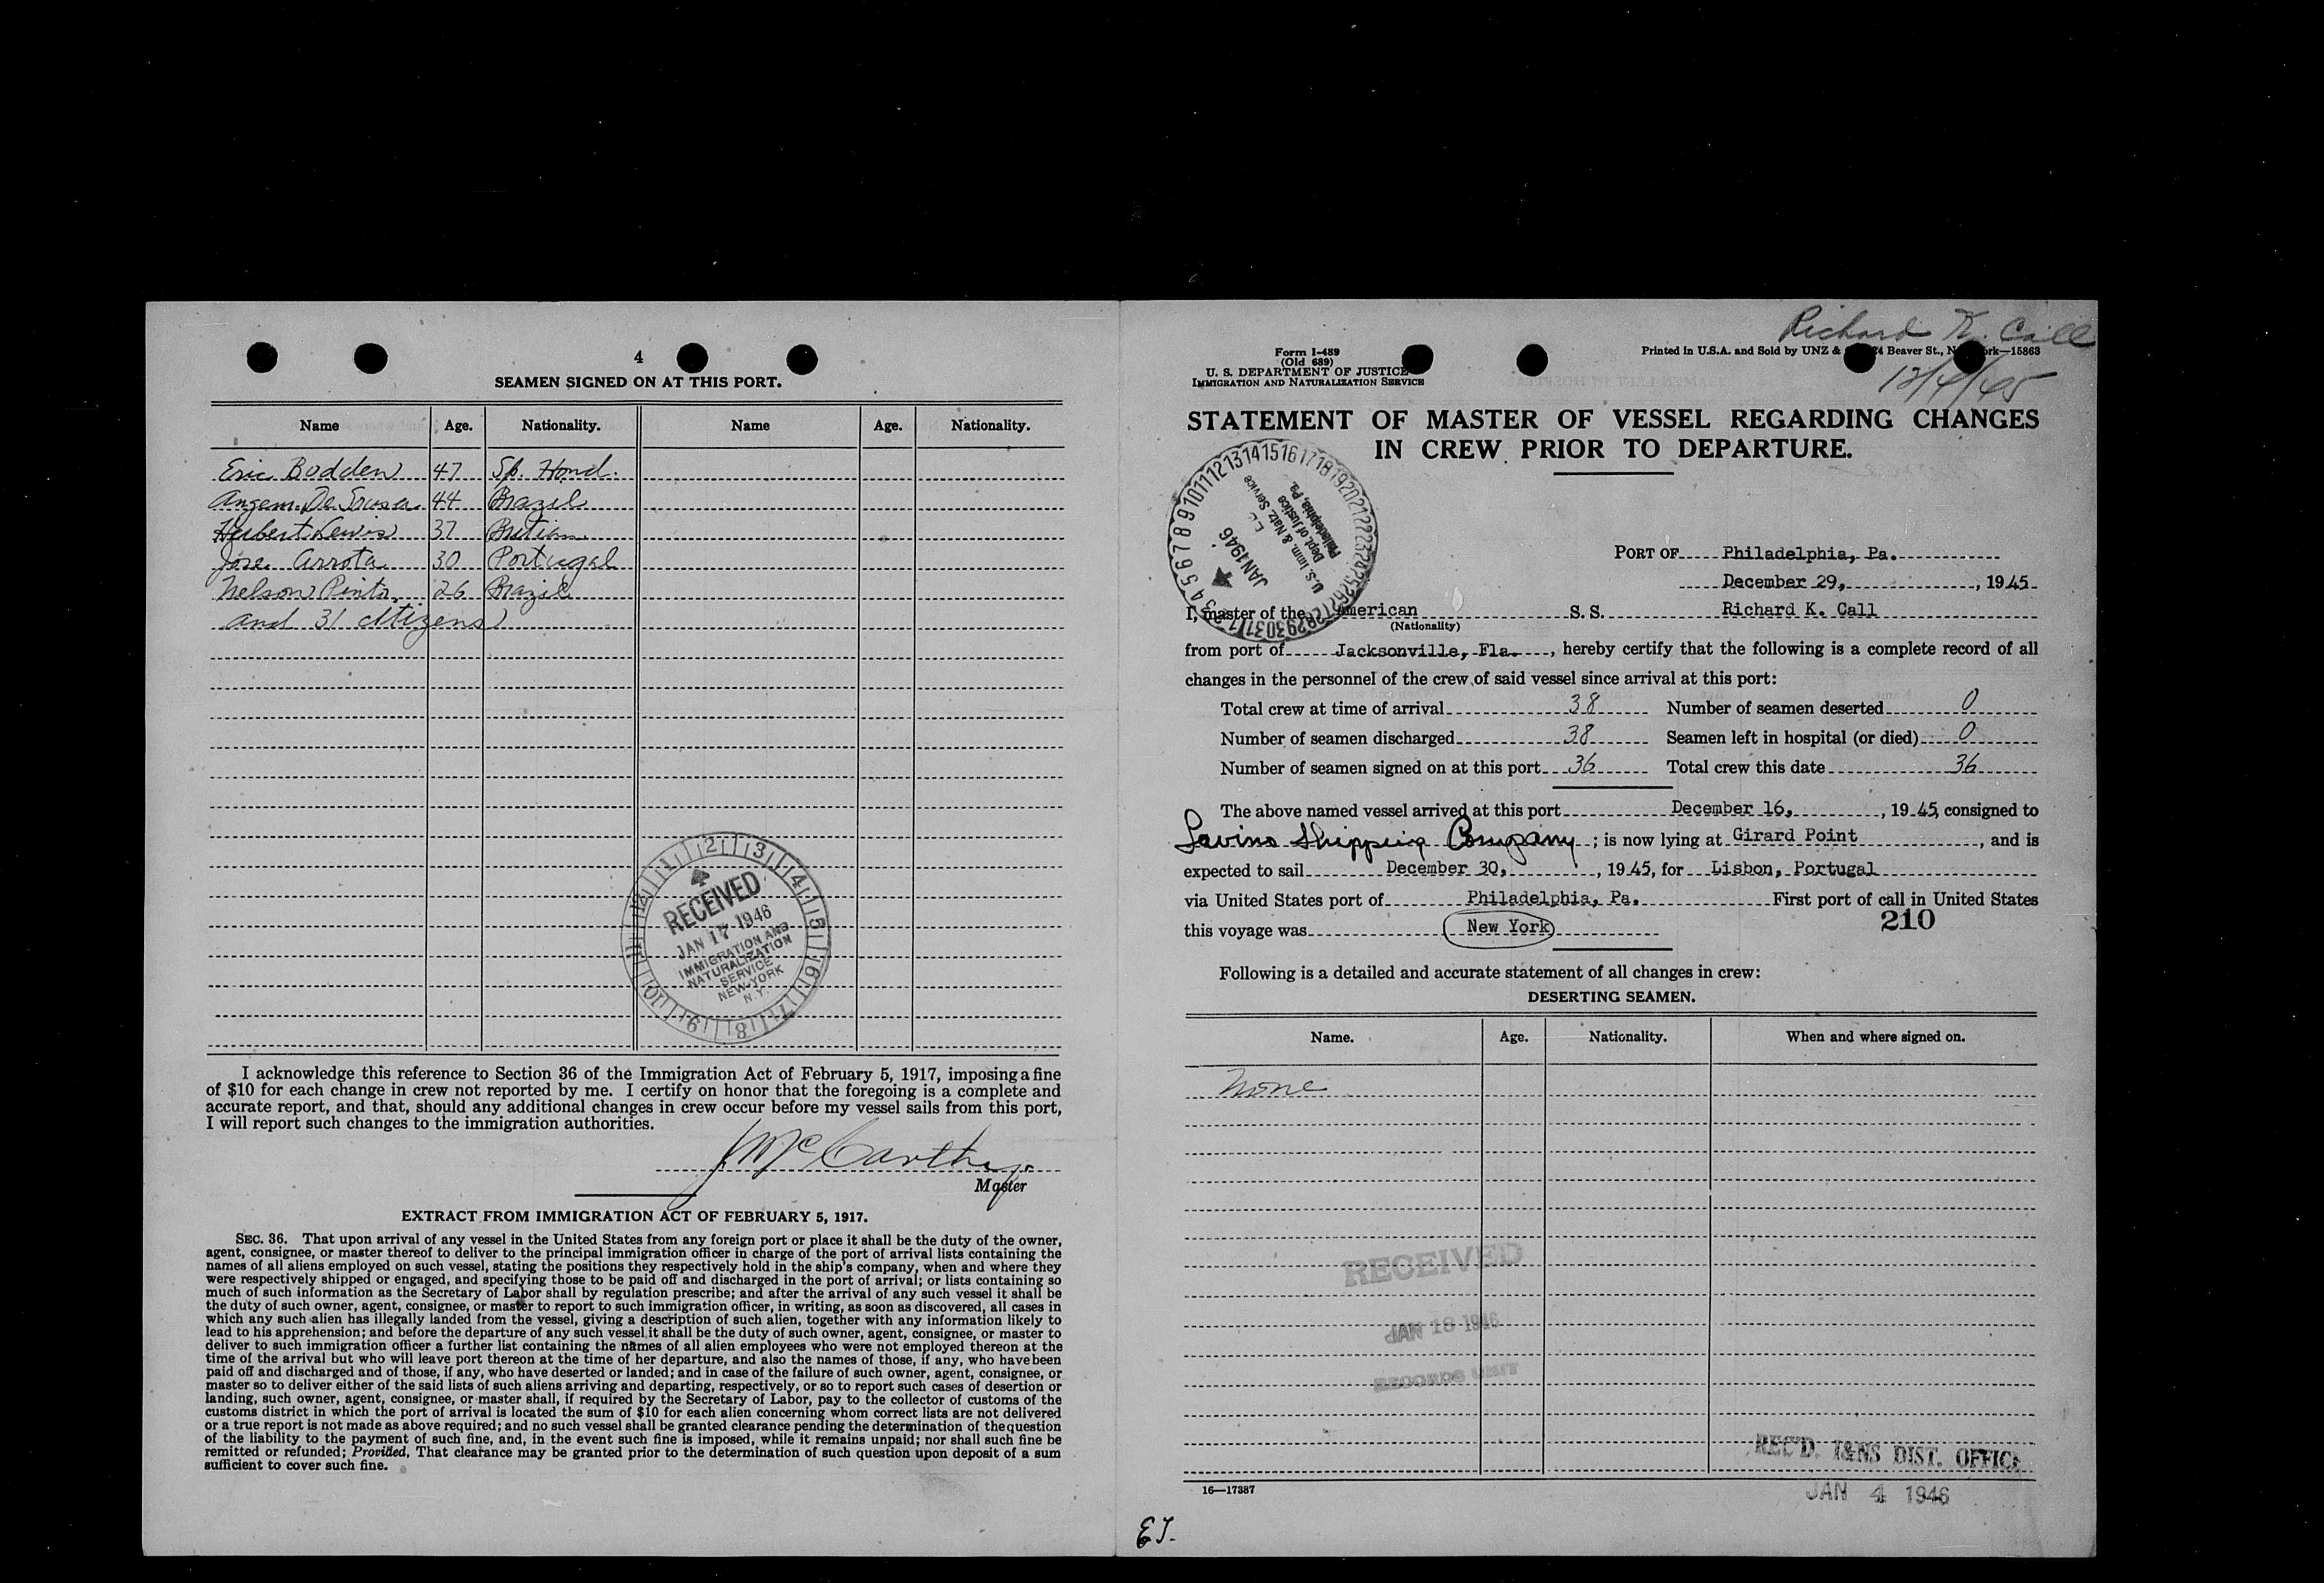 4
SEAMEN SIGNED ON AT THIS PORT.
Name Age. Nationality. Name Age. Nationality.
Eric Bodden 47 Sp. Hond.
De Sousa 44 Brazil
Herbert Lewis 37 Britian
Jose Arrota 30 Portugal
Nelson Pinto 26 Brazil
and 31 citizens)
RECEIVED
JAN 17 1946
IMMIGRATION AND
NATURALIZATION
SERVICE
NEW YORK
N.Y.
I acknowledge this reference to Section 36 of the Immigration Act of February 5, 1917, imposing a fine
of $10 for each change in crew not reported by me. I certify on honor that the foregoing is a complete and
accurate report, and that, should any additional changes in crew occur before my vessel sails from this port,
I will report such changes to the immigration authorities.
J McCarthy
Master
EXTRACT FROM IMMIGRATION ACT OF FEBRUARY 5, 1917.
SEC. 36. That upon arrival of any vessel in the United States from any foreign port or place it shall be the duty of the owner,
agent, consignee, or master thereof to deliver to the principal immigration officer in charge of the port of arrival lists containing the
names of all aliens employed on such vessel, stating the positions they respectively hold in the ship's company, when and where they
were respectively shipped or engaged, and specifying those to be paid off and discharged in the port of arrival; or lists containing so
much of such information as the Secretary of Labor shall by regulation prescribe; and after the arrival of any such vessel it shall be
the duty of such owner, agent, consignee, or master to report to such immigration officer, in writing, as soon as discovered, all cases in
which any such alien has illegally landed from the vessel, giving a description of such alien, together with any information likely to
lead to his apprehension; and before the departure of any such vessel it shall be the duty of such owner, agent, consignee, or master to
deliver to such immigration officer a further list containing the names of all alien employees who were not employed thereon at the
time of the arrival but who will leave port thereon at the time of her departure, and also the names of those, if any, who have been
paid off and discharged and of those, if any, who have deserted or landed; and in case of the failure of such owner, agent, consignee, or
master so to deliver either of the said lists of such aliens arriving and departing, respectively, or so to report such cases of desertion or
landing, such owner, agent, consignee, or master shall, if required by the Secretary of Labor, pay to the collector of customs of the
customs district in which the port of arrival is located the sum of $10 for each alien concerning whom correct lists are not delivered
or a true report is not made as above required; and no such vessel shall be granted clearance pending the determination of the question
of the liability to the payment of such fine, and, in the event such fine is imposed, while it remains unpaid; nor shall such fine be
remitted or refunded; Provided, That clearance may be granted prior to the determination of such question upon deposit of a sum
sufficient to cover such fine.
Richard K. Call
12/4/45
Form I-489
(Old 689)
U. S. DEPARTMENT OF JUSTICE
IMMIGRATION AND NATURALIZATION SERVICE
Printed in U.S.A. and Sold by UNZ & 24 Beaver St., N ork—15863
STATEMENT OF MASTER OF VESSEL REGARDING CHANGES
IN CREW PRIOR TO DEPARTURE.
U.S. Imm. & Natz. Service
Dept. of Justice
Philadelphia, Pa.
JAN 1 1946
PORT OF Philadelphia, Pa.
December 29, , 1945
I, master of the American S. S. Richard K. Call
(Nationality)
from port of Jacksonville, Fla. , hereby certify that the following is a complete record of all
changes in the personnel of the crew of said vessel since arrival at this port:
Total crew at time of arrival 38 Number of seamen deserted 0
Number of seamen discharged 38 Seamen left in hospital (or died) 0
Number of seamen signed on at this port 36 Total crew this date 36
The above named vessel arrived at this port December 16, , 1945, consigned to
Lavino Shipping Company ; is now lying at Girard Point , and is
expected to sail December 30, , 1945, for Lisbon, Portugal
via United States port of Philadelphia, Pa. First port of call in United States
this voyage was New York 210
Following is a detailed and accurate statement of all changes in crew:
DESERTING SEAMEN.
Name. Age. Nationality. When and where signed on.
None
RECEIVED
JAN 18 1946
RECORDS UNIT
REC'D. I&NS DIST. OFFICE
JAN 4 1946
16—17387
EJ.